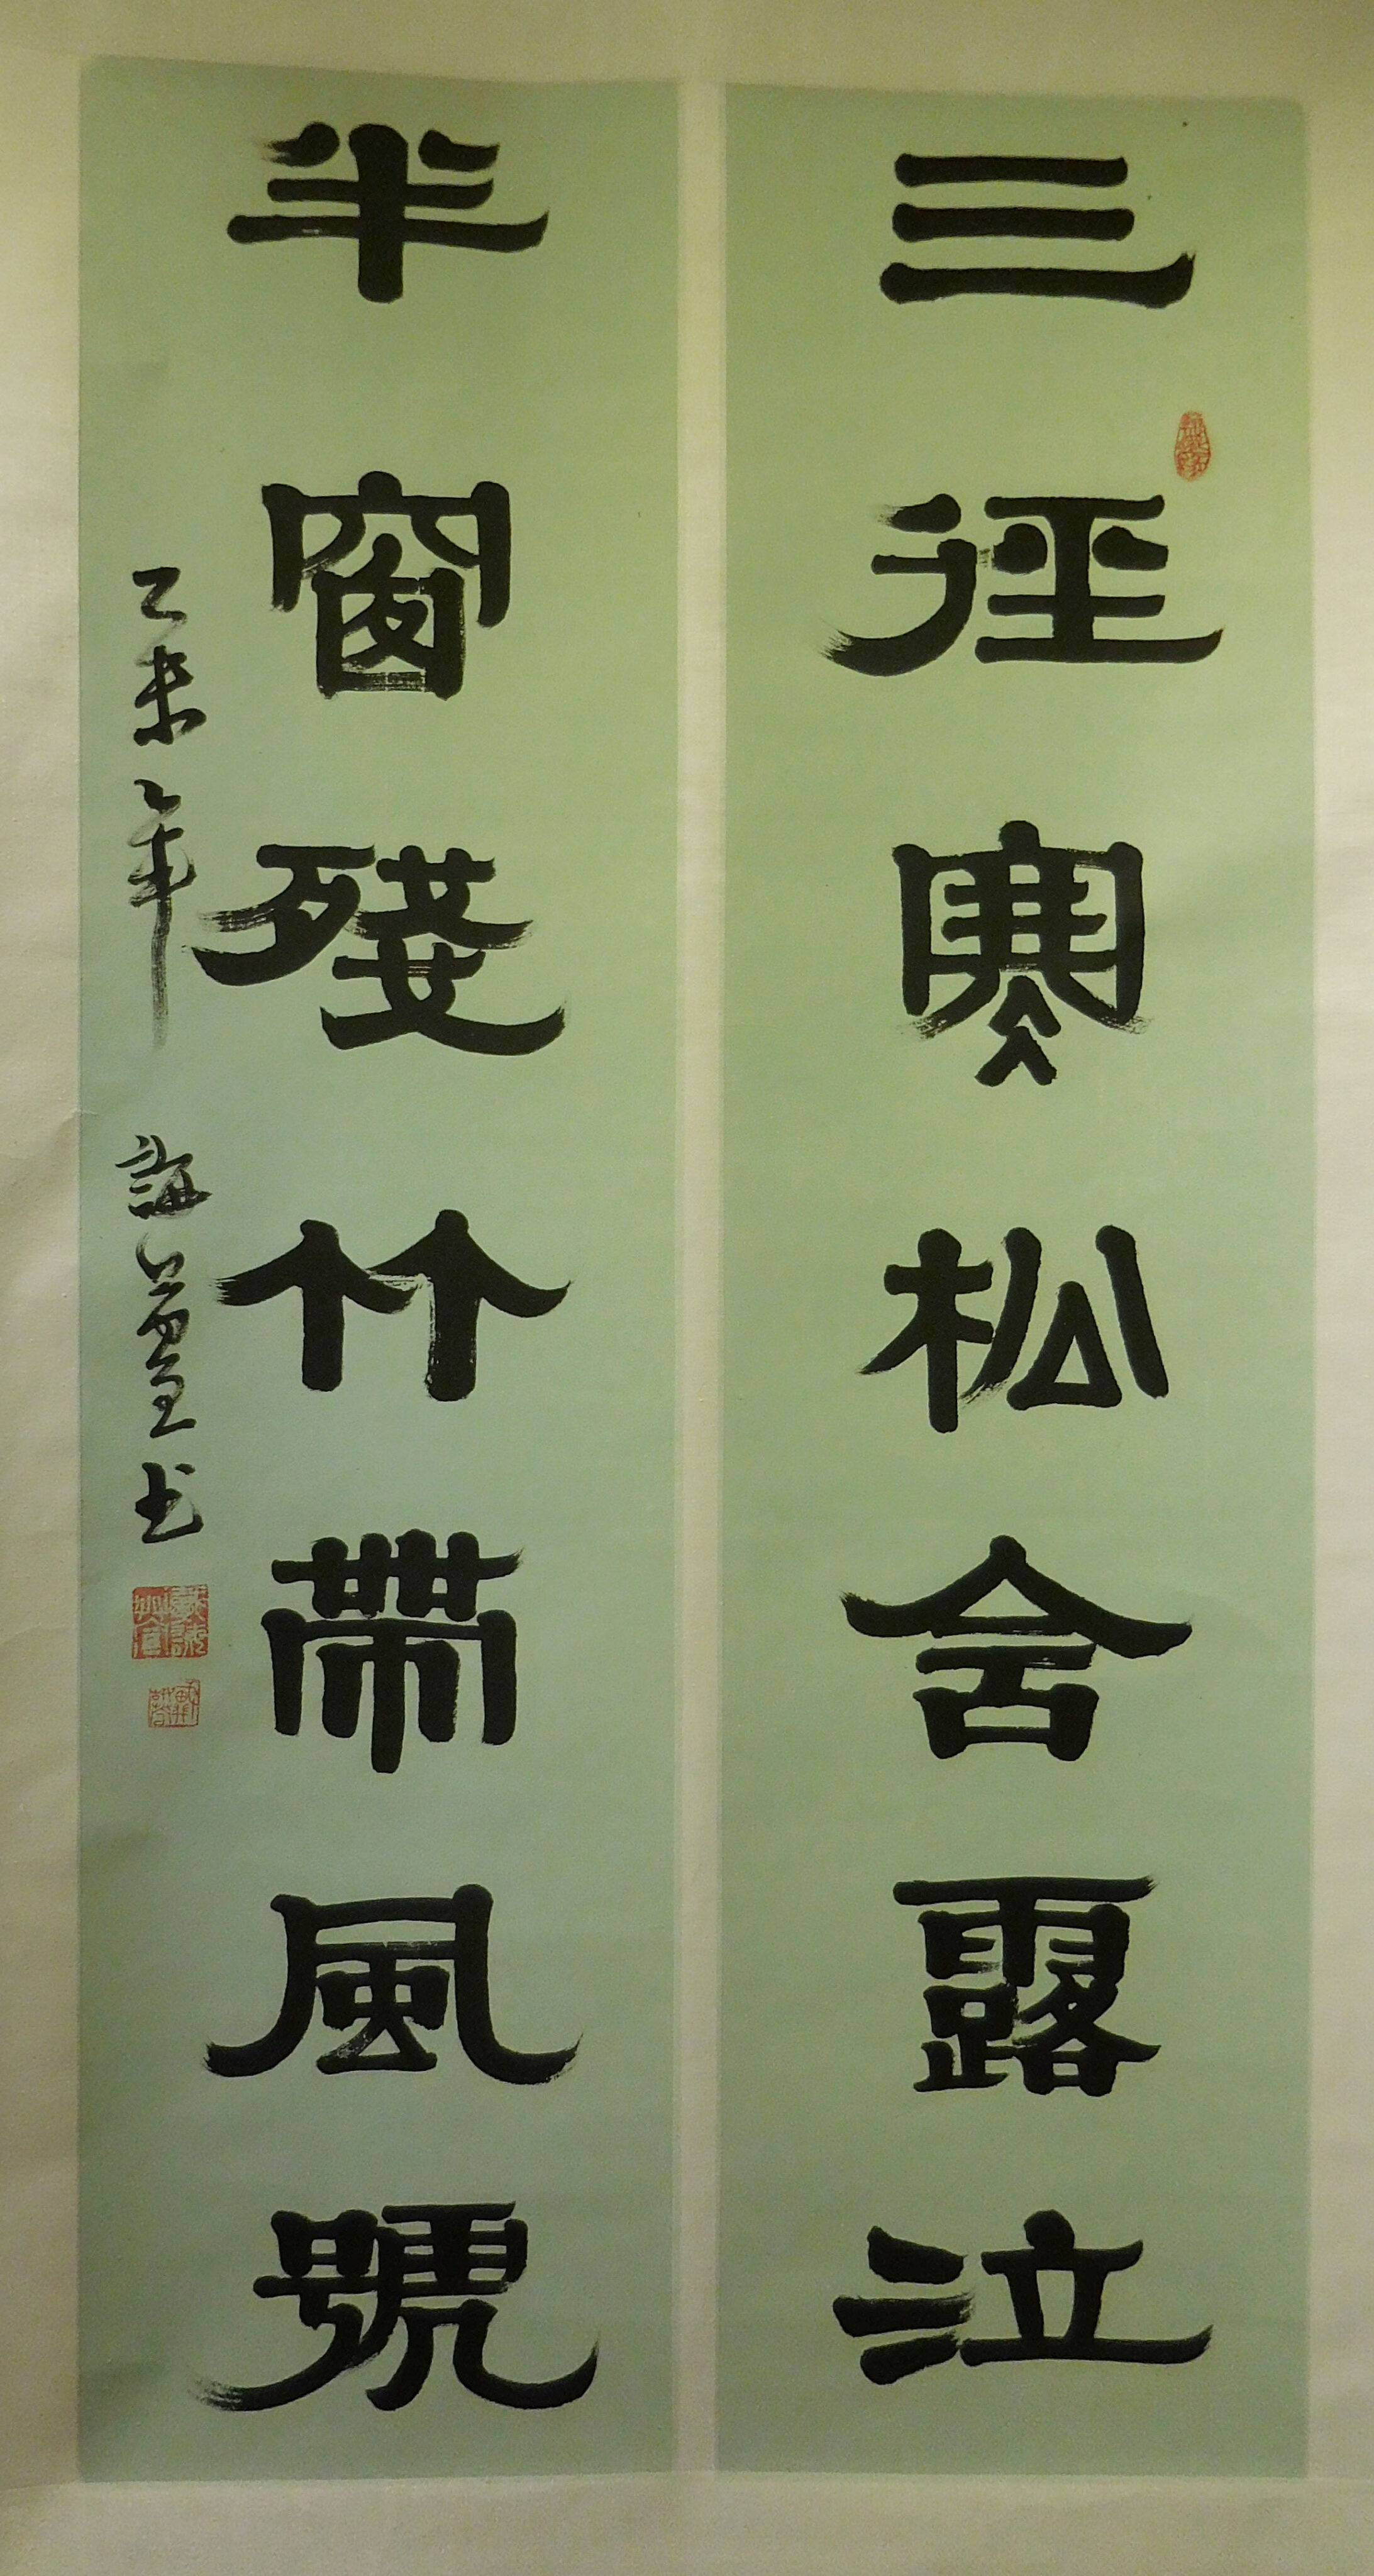 三徑寒松含露泣
半窗殘竹帶風號
乙未年 書